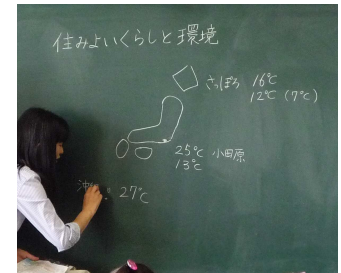 住みよいくらしと環境
さっぽろ 16℃
12℃ (7℃)
25℃ 小田原
13℃
27℃